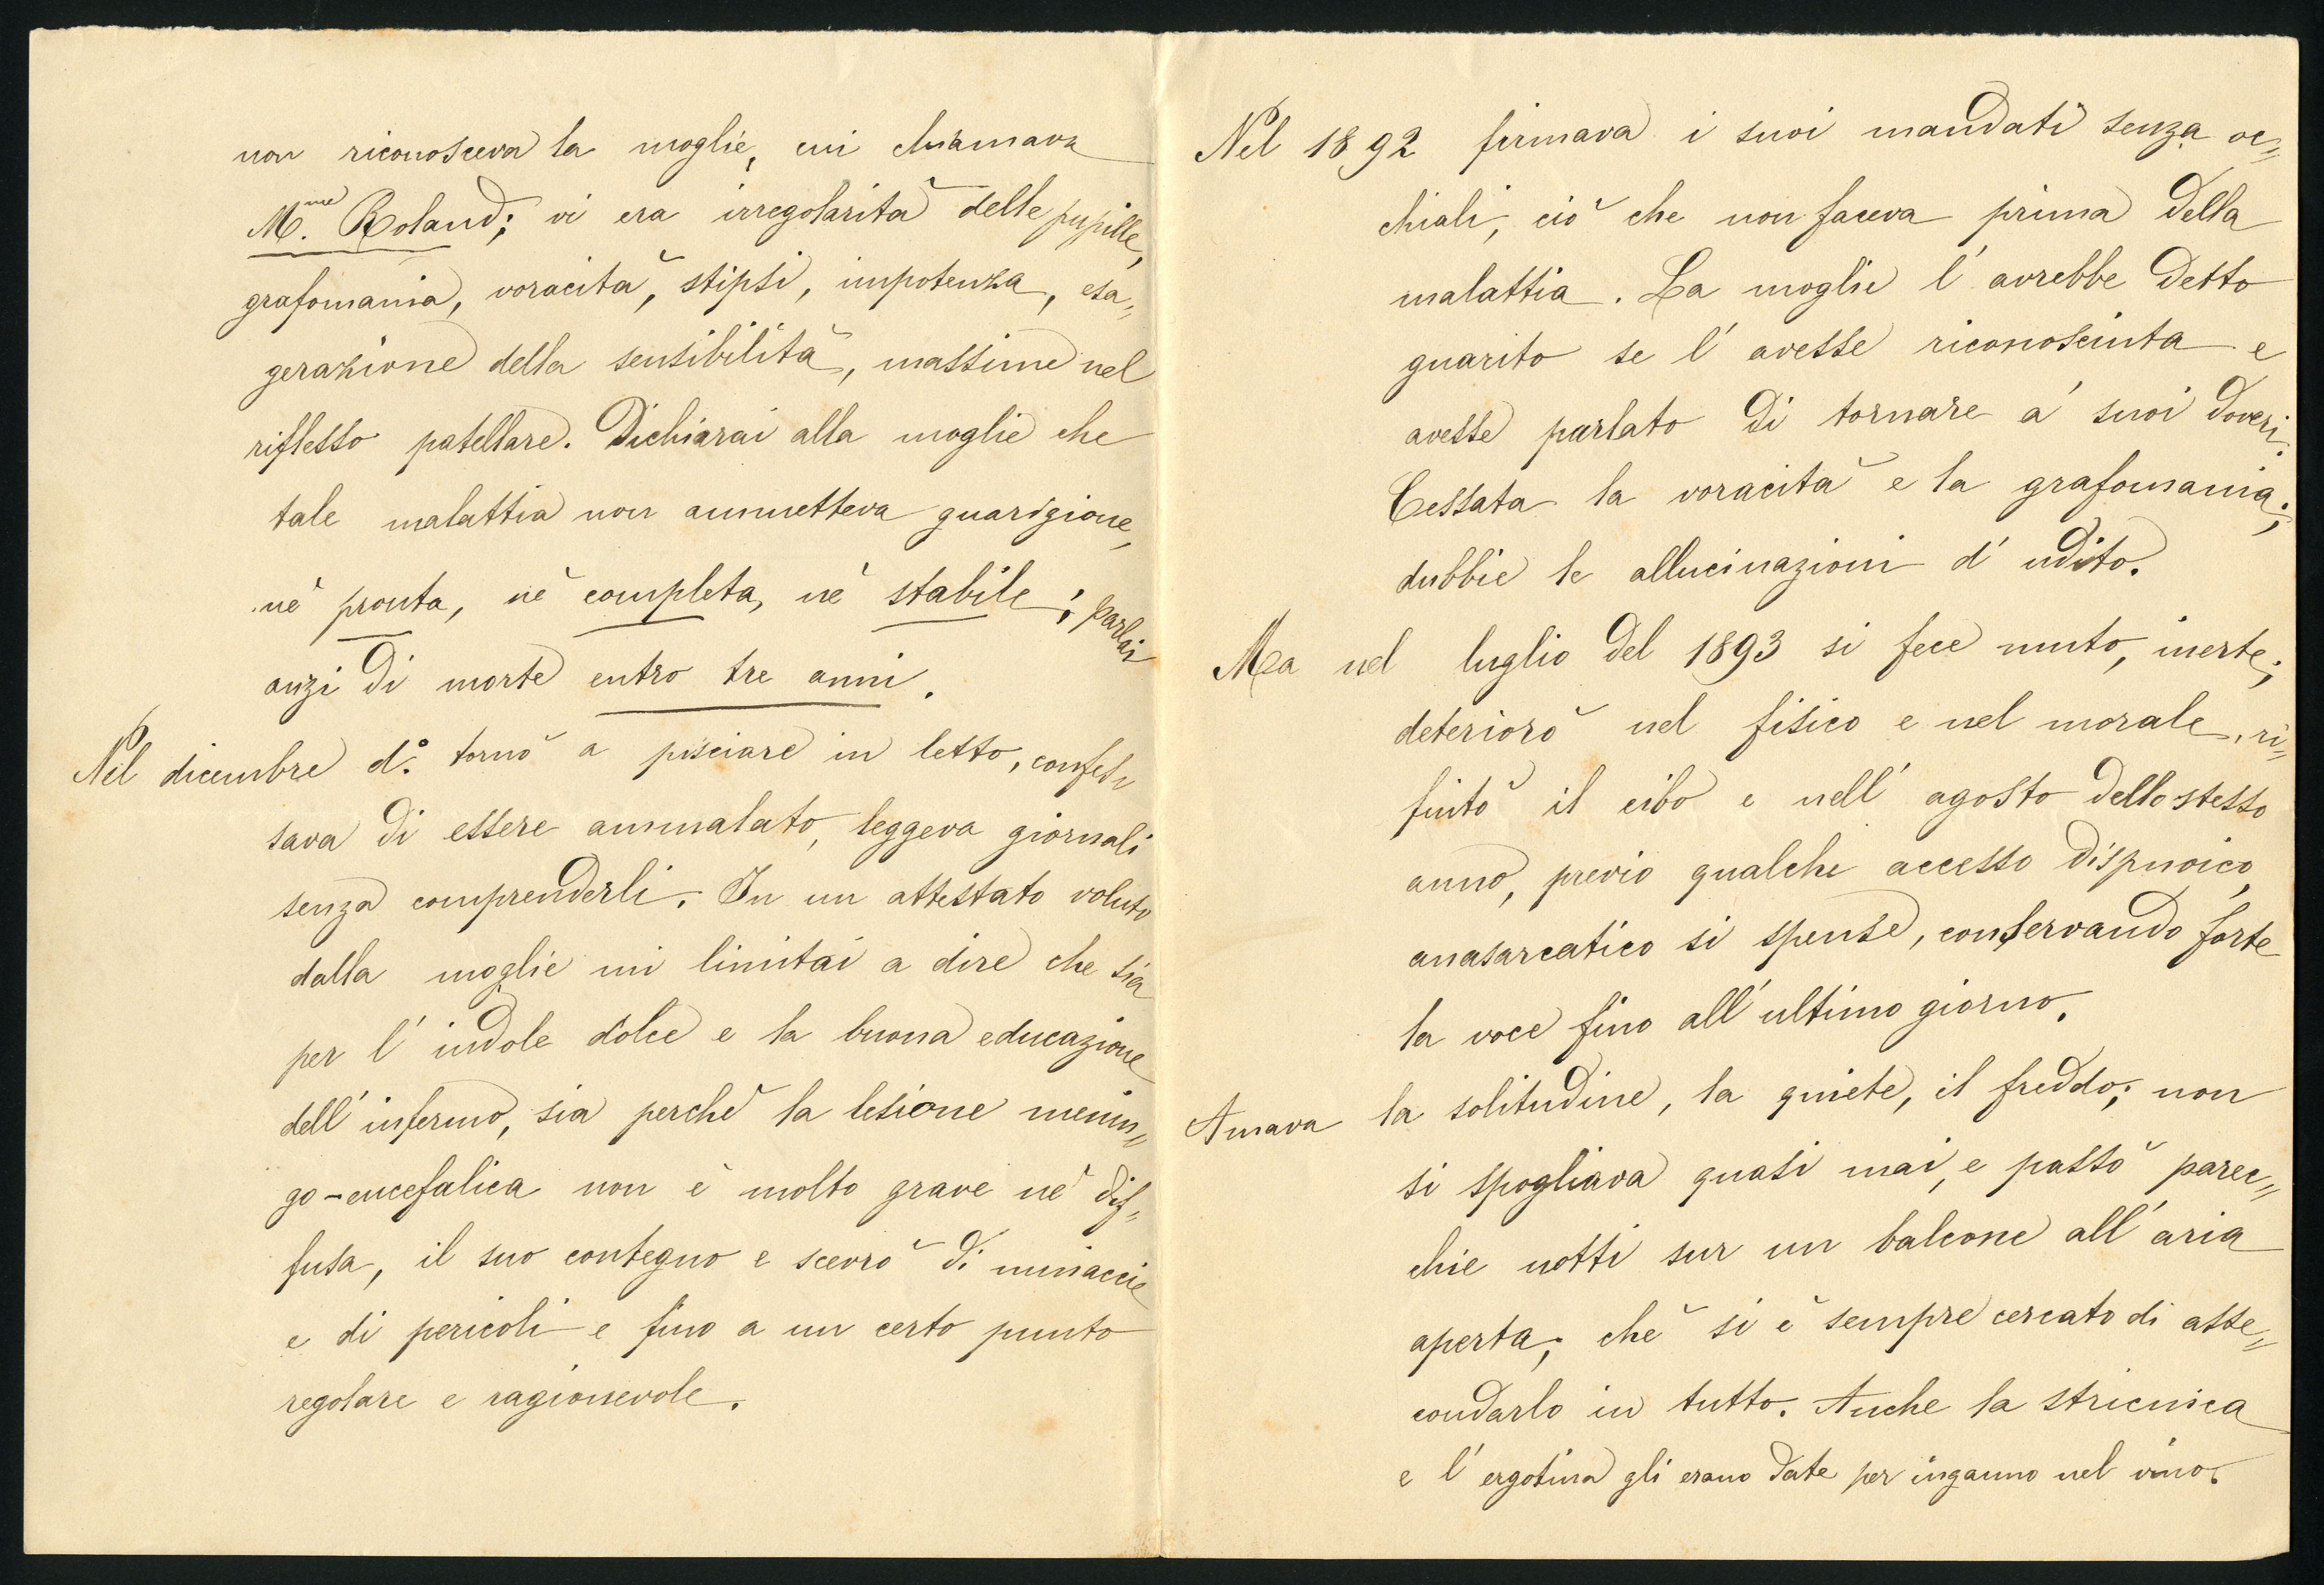 non riconosceva la moglie, cui chiamava
M.me Roland; vi era irregolarità delle pupille,
grafomania, voracità, stipsi, impotenza, esa=
gerazione della sensibilità, massime nel
riflesso patellare. Dichiarai alla moglie che
tale malattia non ammetteva guarigione,
nè pronta, nè completa, nè stabile; parlai
anzi di morte entro tre anni.
Nel dicembre d.o tornò a pisciare in letto, confes
sava di essere ammalato, leggeva giornali
senza comprenderli. In un attestato voluto
dalla moglie mi limitai a dire che sia
per l'indole dolce e la buona educazione
dell'infermo, sia perchè la lesione menin=
go-encefalica non è molto grave nè dif=
fusa, il suo contegno e scevro di minaccie
e di pericoli e fino a un certo punto
regolare e ragionevole.
Nel 1892 firmava i suoi mandati senza oc=
chiali, ciò che non faceva prima della
malattia. La moglie l'avrebbe detto
guarito se l'avesse riconosciuta e
avesse parlato di tornare a' suoi doveri.
Cessata la voracità e la grafomania;
dubbie le allucinazioni d'udito.
Ma nel luglio del 1893 si fece muto, inerte;
deteriorò nel fisico e nel morale, ri=
fiutò il cibo e nell'agosto dello stesso
anno, previo qualche accesso dispnoico,
anasarcatico si spense, conservando forte
la voce fino all'ultimo giorno.
Amava la solitudine, la quiete, il freddo; non
si spogliava quasi mai, e passò parec=
chie notti sur un balcone all'aria
aperta; chè si è sempre cercato di asse=
condarlo in tutto. Anche la stricnica
e l'ergotina gli erano date per inganno nel vino.